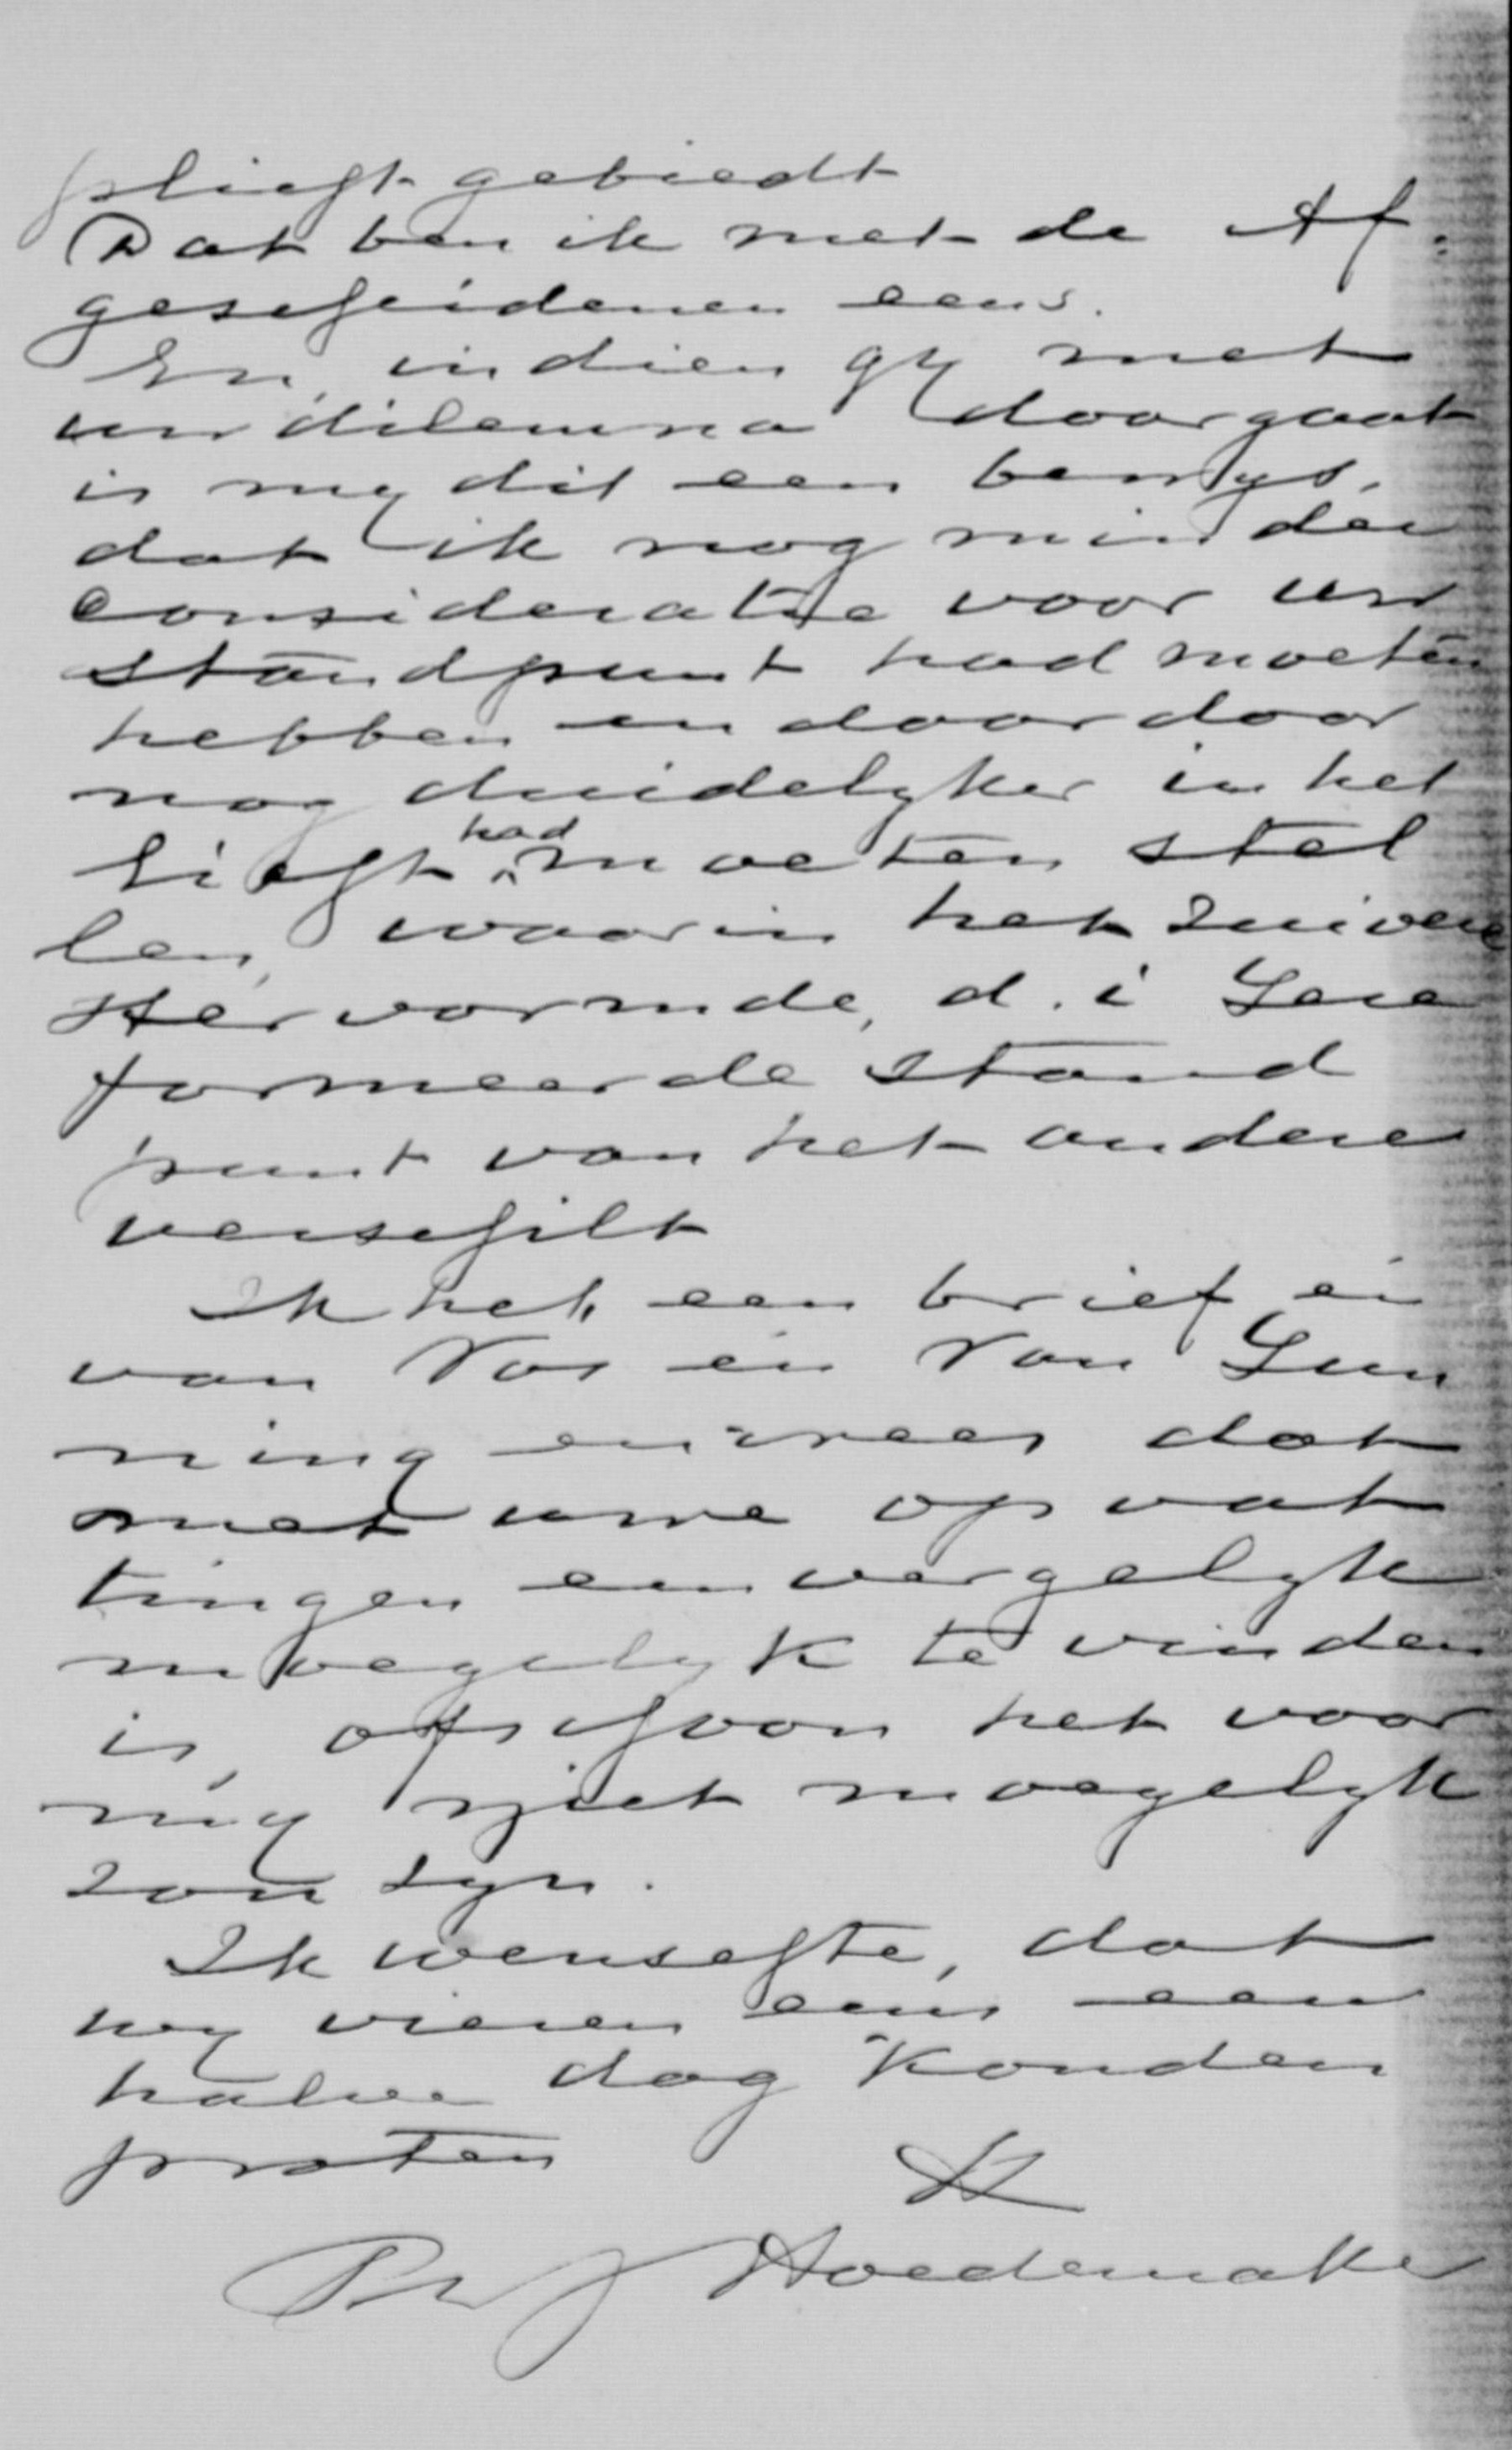 pliegt gebiedt
Dat ben ik met de Af-
gescheidenen eens.
En, indien gy met
uw dilemma doorgaat
is my dit een bewys,
dat ik nog minder
consideratie voor uw
standpunt had moeten
hebben en daardoor
nog duidelyker in het
licht had moeten stel
len, waarin het zuivere
Hervormde, d. i Gere
formeerde stand
punt van het andere
verschilt
Ik heb een brief èn
van Vos èn van Gun
ning en vrees dat
met uwe opvat
tingen een vergelyk
mogelyk te vinden
is, ofschoon het voor
my niet moegelyk
zou zyn.
Ik wenschte, dat
wy vieren eens een
halve dag konden
praten
Ph J Hoedemaker